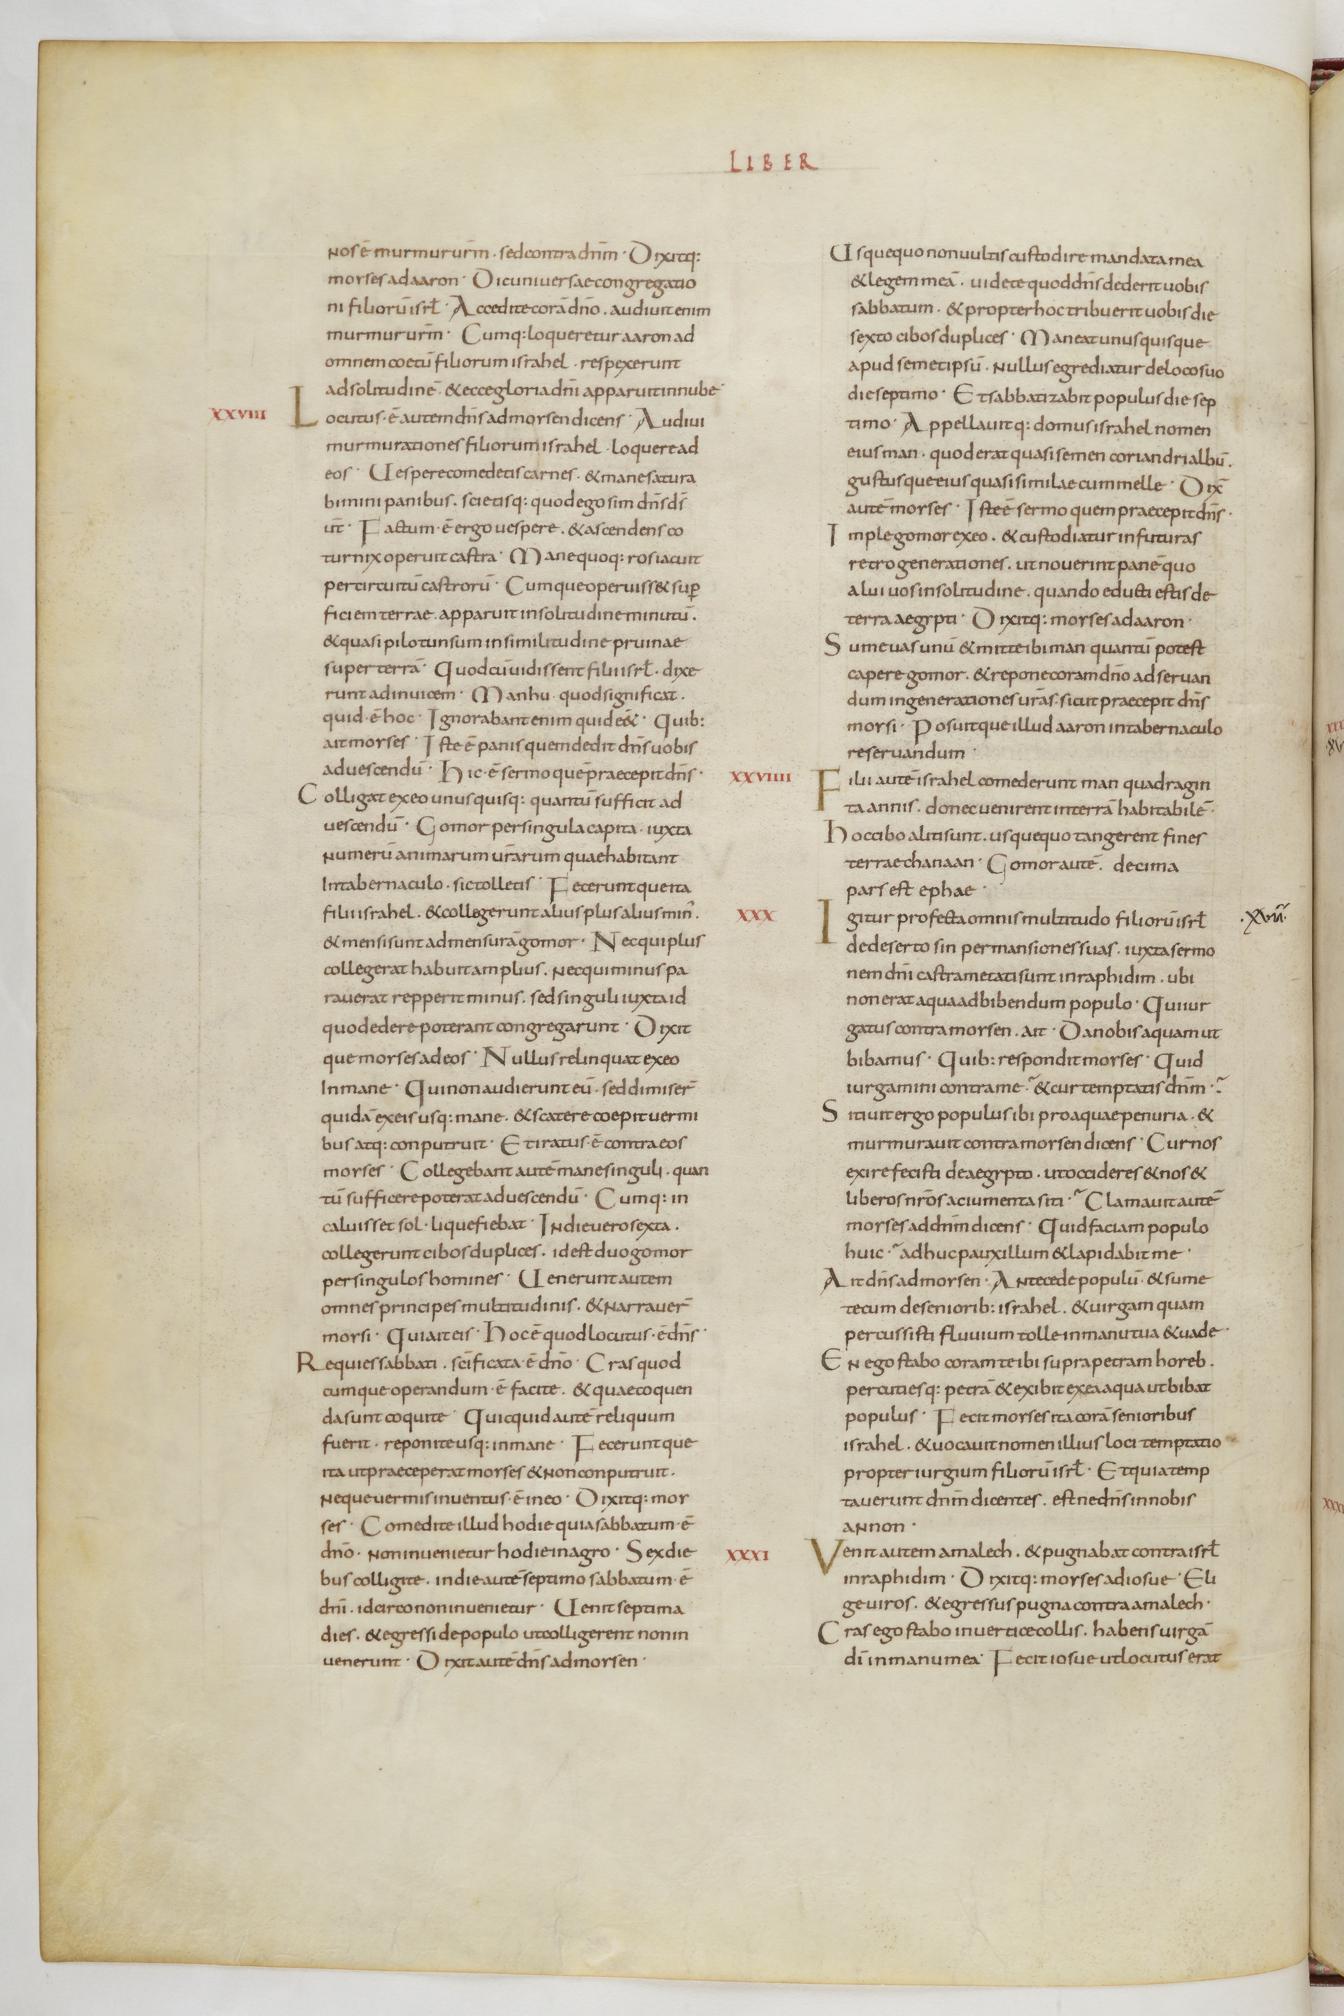 LIBER
nos ē murmur urm̄ . sed contra dnm̄ · Dixitq:
moyses ad aaron · Dic universae congregatio
ni filiorū isrl̄ · Accedite corā dn̄o . audiuit enim
murmur urm̄ · Cumq: loqueretur aaron ad
omnem coetū filiorum israhel . respexerunt
ad solitudinē · & ecce gloria dn̄i apparuit in nube ·
XXVIIII
Locutus · ē autem dn̄s ad moysen dicens · Audiui
murmurationes filiorum israhel · loquere ad
eos · Uespere comedetis carnes . & mane satura
bimini panibus . scietisq: quod ego sim dn̄s ds̄
ur̄ · Factum · ē ergo uespere . & ascendens co
turnix operuit castra · Mane quoq: ros iacuit
per circuitū castrorū · Cumque operuiss& sup̱
ficiem terrae . apparuit in solitudine minutū .
& quasi pilo tunsum in similitudine pruinae
super terrā · Quod cū uidissent filii isrl̄ . dixe
runt ad inuicem · Man hu . quod significat .
quid · ē hoc · Ignorabant enim quid e&̄ · Quib:
ait moyses · Iste ē panis quem dedit dn̄s uobis
ad uescendū · Hic · ē sermo quē praecepit dn̄s ·
Colligat ex eo unusquisq: quantū sufficit ad
uescendū · Gomor per singula capita . iuxta
numerū animarum ur̄arum quae habitant
In tabernaculo . sic tolletis · Feceruntque ita
filii israhel . & collegerunt alius plus alius min̄ .
& mensi sunt ad mensurā gomor · Nec qui plus
collegerat habuit amplius . nec qui minus pa
rauerat repperit minus . sed singuli iuxta id
quod edere poterant congregarunt · Dixit
que moyses ad eos · Nullus relinquat ex eo
In mane · Qui non audierunt eū . sed dimiser̄
quidā ex eis usq: mane . & scatere coepit uermi
bus atq: conputruit · Et iratus · ē contra eos
moyses · Collegebant autē mane singuli . quan
tū sufficere poterat ad uescendū · Cumq: in
caluisset sol . liquefiebat · In die uero sexta .
collegerunt cibos duplices . id est duo gomor
per singulos homines · Uenerunt autem
omnes principes multitudinis . & narrauer̄
moysi · Qui ait eis · Hoc ē quod locutus · ē dn̄s ·
Requies sabbati . scīficata · ē dn̄o · Cras quod
cumque operandum · ē facite . & quae coquen
da sunt coquite · Quicquid autē reliquum
fuerit . reponite usq: in mane · Feceruntque
ita ut praeceperat moyses & non conputruit .
neque uermis inuentus · ē in eo · Dixitq: moy
ses · Comedite illud hodie quia sabbatum · ē
dn̄o · non inuenietur hodie in agro · Sex die
bus colligite . in die autē septimo sabbatum · ē
dn̄i . idcirco non inuenietur · Uenit septima
dies . & egressi de populo ut colligerent non in
uenerunt · Dixit autē dn̄s ad moysen ·
Usquequo non uultis custodire mandata mea
& legem meā . uidete quod dn̄s dederit uobis
sabbatum . & propter hoc tribuerit uobis die
sexto cibos duplices · Maneat unusquisque
apud semetipsū . nullus egrediatur de loco suo
die septimo · Et sabbatizabit populus die sep
timo · Appellauitq: domus israhel nomen
eius man . quod erat quasi semen coriandri albū .
gustusque eius quasi similae cum melle · Dix̄
autē moyses · Iste ē sermo quem praecepit dn̄s ·
Imple gomor ex eo . & custodiatur in futuras
retro generationes . ut nouerint panē quo
alui uos in solitudine . quando educti estis de
terra aegypti · Dixitq: moyses ad aaron ·
Sume uas unū & mitte ibi man quantū potest
capere gomor . & repone coram dn̄o ad seruan
dum in generationes ur̄as . sicut praecepit dn̄s
moysi · Posuitque illud aaron in tabernaculo
reseruandum ·
XXVIIII
Filii autē israhel comederunt man quadragin
ta annis . donec uenirent in terrā habitabilē ·
Hoc cibo aliti sunt . usquequo tangerent fines
terrae chanaan · Gomor autē . decima
pars est ephae ·
XXX
Igitur profecta omnis multitudo filiorū isrl̄
de deserto sin per mansiones suas . iuxta sermo
nem dn̄i castrametati sunt in raphidim . ubi
non erat aqua ad bibendum populo · Qui iur
gatus contra moysen . ait · Da nobis aquam ut
bibamus · Quib: respondit moyses · Quid
iurgamini contra me · & cur temptatis dnm̄ ·
Sitiuit ergo populus ibi pro aquae penuria . &
murmurauit contra moysen dicens · Cur nos
exire fecisti de aegypto . ut occideres & nos &
liberos nr̄os ac iumenta siti · Clamauit autē
moyses ad dnm̄ dicens · Quid faciam populo
huic · adhuc pauxillum & lapidabit me ·
Ait dn̄s ad moysen · Antecede populū · & sume
tecum de seniorib: israhel . & uirgam quam
percussisti fluuium tolle in manu tua & uade ·
En ego stabo coram te ibi supra petram horeb .
percutiesq: petrā & exibit ex ea aqua ut bibat
populus · Fecit moyses ita corā senioribus
israhel . & uocauit nomen illius loci temptatio
propter iurgium filiorū isrl̄ · Et quia temp
tauerunt dnm̄ dicentes . est ne dn̄s in nobis
an non ·
XXXI
Venit autem amalech . & pugnabat contra isrl̄
in raphidim · Dixitq: moyses ad iosue · Eli
ge uiros . & egressus pugna contra amalech ·
Cras ego stabo in uertice collis . habens uirgā
dī in manu mea · Fecit iosue ut locutus erat